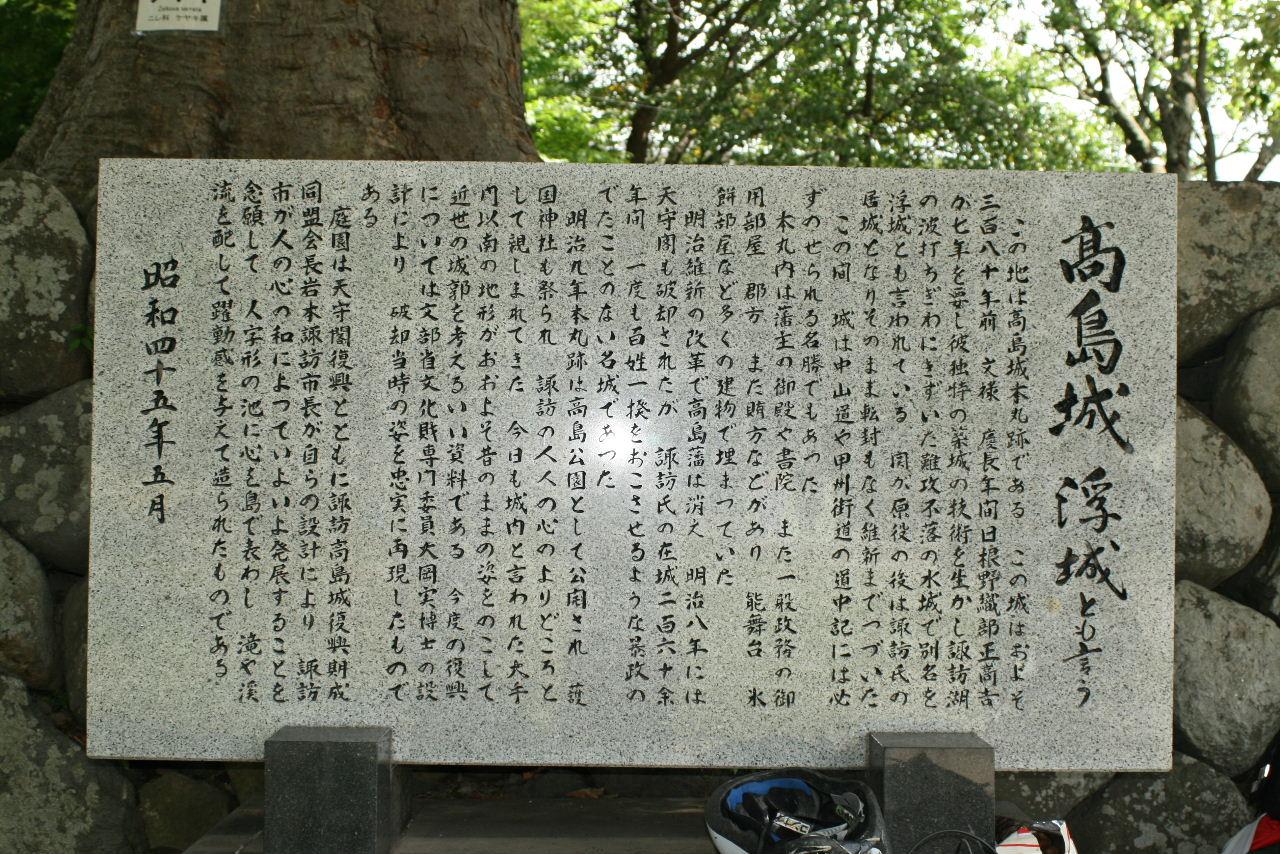 高島城 浮城とも言う
この地は高島城本丸跡である この城はおよそ
三百八十年前 文禄 慶長年間日根野織部正高吉
が七年を要し彼独特の築城の技術を生かし諏訪湖
の波打ちぎわにきずいた難攻不落の水城で別名を
浮城とも言われている 関が原役の後は諏訪氏の
居城となりそのまま転封もなく維新までつづいた
この間 城は中山道や甲州街道の道中記には必
ずのせられる名勝でもあった
本丸内は藩主の御殿や書院 また一般政務の御
用部屋 郡方 また賄方などがあり 能舞台 氷
餅部屋など多くの建物で埋まっていた
明治維新の改革で高島藩は消え 明治八年には
天守閣も破却されたが 諏訪氏の在城二百六十余
年間 一度も百姓一揆をおこさせるような暴政の
でたことのない名城であった
明治九年本丸跡は高島公園として公開され 護
国神社も祭られ 諏訪の人人の心のよりどころと
して親しまれてきた 今日も城内と言われた大手
門以南の地形がおおよそ昔のままの姿をのこして
近世の城郭を考えるいい資料である 今度の復興
については文部省文化財専門委員大岡実博士の設
計により 破却当時の姿を忠実に再現したもので
ある
庭園は天守閣復興とともに諏訪高島城復興期成
同盟会長岩本諏訪市長が自らの設計により 諏訪
市が人の心の和によっていよいよ発展することを
念願して 人字形の池に心を島で表わし 滝や渓
流を配して躍動感を与えて造られたものである
昭和四十五年五月
Zelkova serrata
ニレ科 ケヤキ属